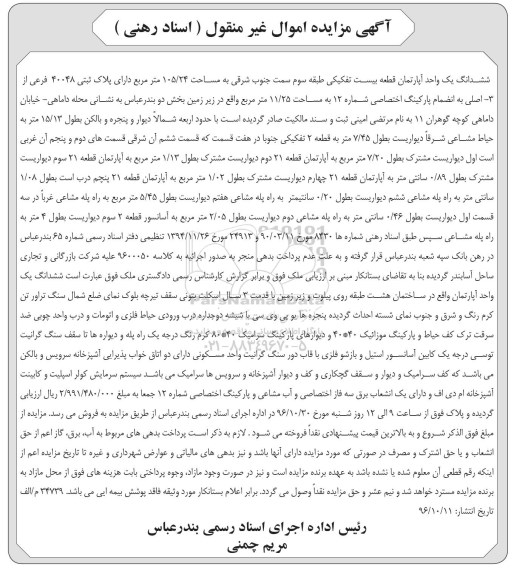 آگهی مزایده اموال غیر منقول ( اسناد رهنی )
ششدانگ یک واحد آپارتمان قطعه بیست تفکیکی طبقه سوم سمت جنوب شرقی به مساحت ۱۰۵/۲۴ متر مربع دارای پلاک ثبتی ۴۰۰۴۸ فرعی از
۳- اصلی به انضمام پارکینگ اختصاصی شماره ۱۲ به مساحت ۱۱/۲۵ متر مربع واقع در زیر زمین بخش دو بندرعباس به نشانی محله داماهی- خیابان
داماهی کوچه گوهران ۱۱ به نام مرتضی امینی ثبت و سند مالکیت صادر گردیده است با حدود اربعه شمالاً دیوار و پنجره و بالکن بطول ۱۵/۱۳ متر به
حیاط مشاعی شرقاً دیواریست بطول ۷/۴۵ متر به قطعه ۲ تفکیکی جنوبا در هفت قسمت که قسمت ششم آن شرقی قسمت های دوم و پنجم آن غربی
است اول دیواریست مشترک بطول ۷/۲۰ متر مربع به آپارتمان قطعه ۲۱ دوم دیواریست مشترک بطول ۱/۱۳ متر مربع به آپارتمان قطعه ۲۱ سوم دیواریست
مشترک بطول ۰/۸۹ سانتی متر به آپارتمان قطعه ۲۱ چهارم دیواریست مشترک بطول ۱/۰۲ متر مربع به آپارتمان قطعه ۲۱ پنجم درب است بطول ۱/۰۸
سانتی متر به راه پله مشاعی ششم دیواریست بطول ۰/۲۰ سانتیمتر به راه پله مشاعی هفتم دیواریست بطول ۵/۴۵ متر مربع به راه پله مشاعی غرباً در سه
قسمت اول دیواریست بطول ۰/۴۶ سانتی متر به راه پله مشاعی دوم دیواریست بطول ۲/۰۵ متر مربع به آسانسور قطعه ۲ سوم دیواریست بطول ۴ متر به
راه پله مشاعی سپس طبق اسناد رهنی شماره ها ۸۴۳۰ مورخ ۹۰/۰۳/۱۱ و ۲۴۹۱۳ مورخ ۱۳۹۴/۱۱/۲۶ تنظیمی دفتر اسناد رسمی شماره ۶۵ بندرعباس
در رهن بانک سپه شعبه بندرعباس قرار گرفته و به علت عدم پرداخت بدهی منجر به صدور اجرائیه به کلاسه ۹۶۰۰۰۵۰ علیه شرکت بازرگانی و تجاری
ساحل آسایندر گردیده بنا به تقاضای بستانکار مبنی بر ارزیابی ملک فوق و برابر گزارش کارشناس رسمی دادگستری ملک فوق عبارت است ششدانگ یک
واحد آپارتمان واقع در ساختمان هشت طبقه روی پیلوت و زیر زمین با قدمت ۳ سال اسکلت بتونی سقف تیرچه بلوک نمای ضلع شمال سنگ تراور تن
کرم رنگ و شرق و جنوب نمای شسته احداث گردیده پنجره ها یو پی وی سی با شیشه دوجداره درب ورودی حیاط فلزی و اتومات و درب واحد چوبی ضد
سرقت ترک کف حیاط و پارکینگ موزائیک ۴۰*۴۰ و دیوارهای پارکینگ سرامیک ۴۰*۸۰ کرم رنگ درجه یک راه پله و دیواره ها تا سقف سنگ گرانیت
توسی درجه یک کابین آسانسور استیل و بازشو فلزی با قاب دور سنگ گرانیت واحد مسکونی دارای دو اتاق خواب پذیرایی آشپزخانه سرویس و بالکن
می باشد که کف سرامیک و دیوار و سقف گچکاری و کف و دیوار آشپزخانه و سرویس ها سرامیک می باشد سیستم سرمایش کولر اسپلیت و کابینت
آشپزخانه ام دی اف و دارای یک انشعاب برق سه فاز اختصاصی و آب مشاعی و پارکینگ اختصاصی شماره ۱۲ جمعا به مبلغ ۲/۹۹۱/۴۸۰/۰۰۰ ریال ارزیابی
گردیده و پلاک فوق از ساعت ۹ الی ۱۲ روز شنبه مورخ ۹۶/۱۰/۳۰ در اداره اجرای اسناد رسمی بندرعباس از طریق مزایده به فروش می رسد. مزایده از
مبلغ فوق الذکر شروع و به بالاترین قیمت پیشنهادی نقداً فروخته می شود . لازم به ذکر است پرداخت بدهی های مربوط به آب، برق، گاز اعم از حق
انشعاب و یا حق اشتراک و مصرف در صورتی که مورد مزایده دارای آنها باشد و نیز بدهی های مالیاتی و عوارض شهرداری و غیره تا تاریخ مزایده اعم از
اینکه رقم قطعی آن معلوم شده یا نشده باشد به عهده برنده مزایده است و نیز در صورت وجود مازاد، وجوه پرداختی بابت هزینه های فوق از محل مازاد به
برنده مزایده مسترد خواهد شد و نیم عشر و حق مزایده نقداً وصول می گردد. برابر اعلام بستانکار مورد وثیقه فاقد پوشش بیمه ایی می باشد. ۳۴۷۳۹ م/الف
تاریخ انتشار: ۹۶/۱۰/۱۱
رئیس اداره اجرای اسناد رسمی بندرعباس
مریم چمنی